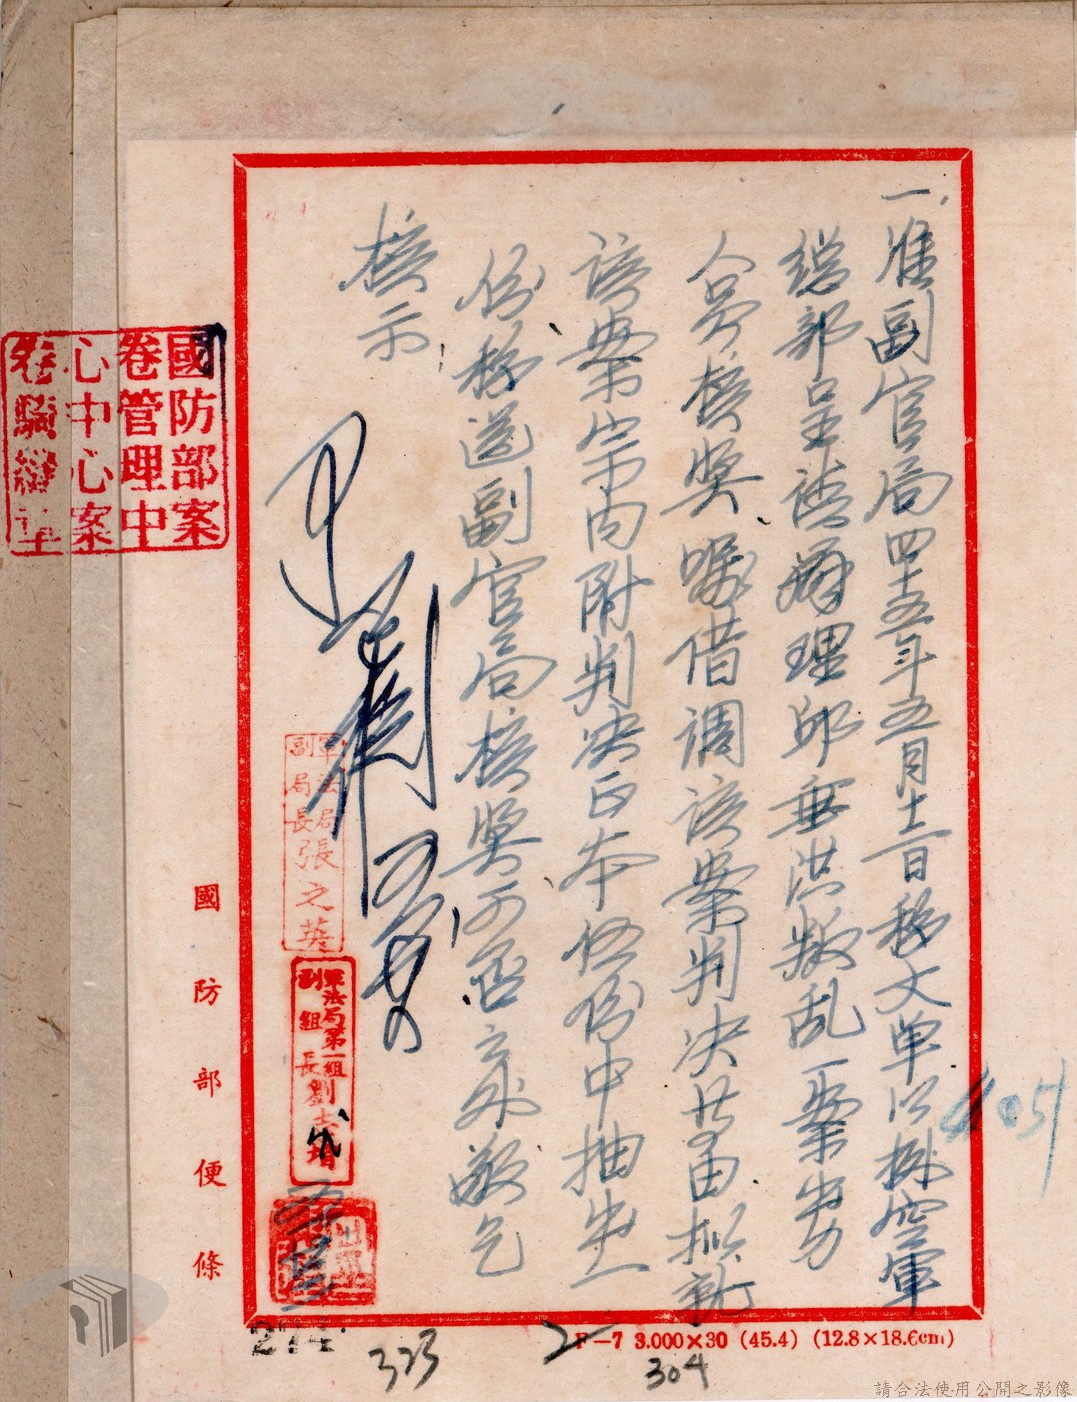 一、准副官局四十五年五月十二日移文單以據空軍
總部呈請辦理邱垂洪叛亂一案出力
人員核獎囑借調該案判決書由擬就
該案案內附判決正本伍份中抽出一
份移送副官局核獎可否之處敬乞
核示
軍法局
副局長張之英
軍法局第一組
副組長劉
國防部案
卷管理中
心中心案
卷騎縫章
4051
國防部便條
274
323
304
F—7 3.000×30 (45.4) (12.8×18.6cm)
請合法使用公開之影像